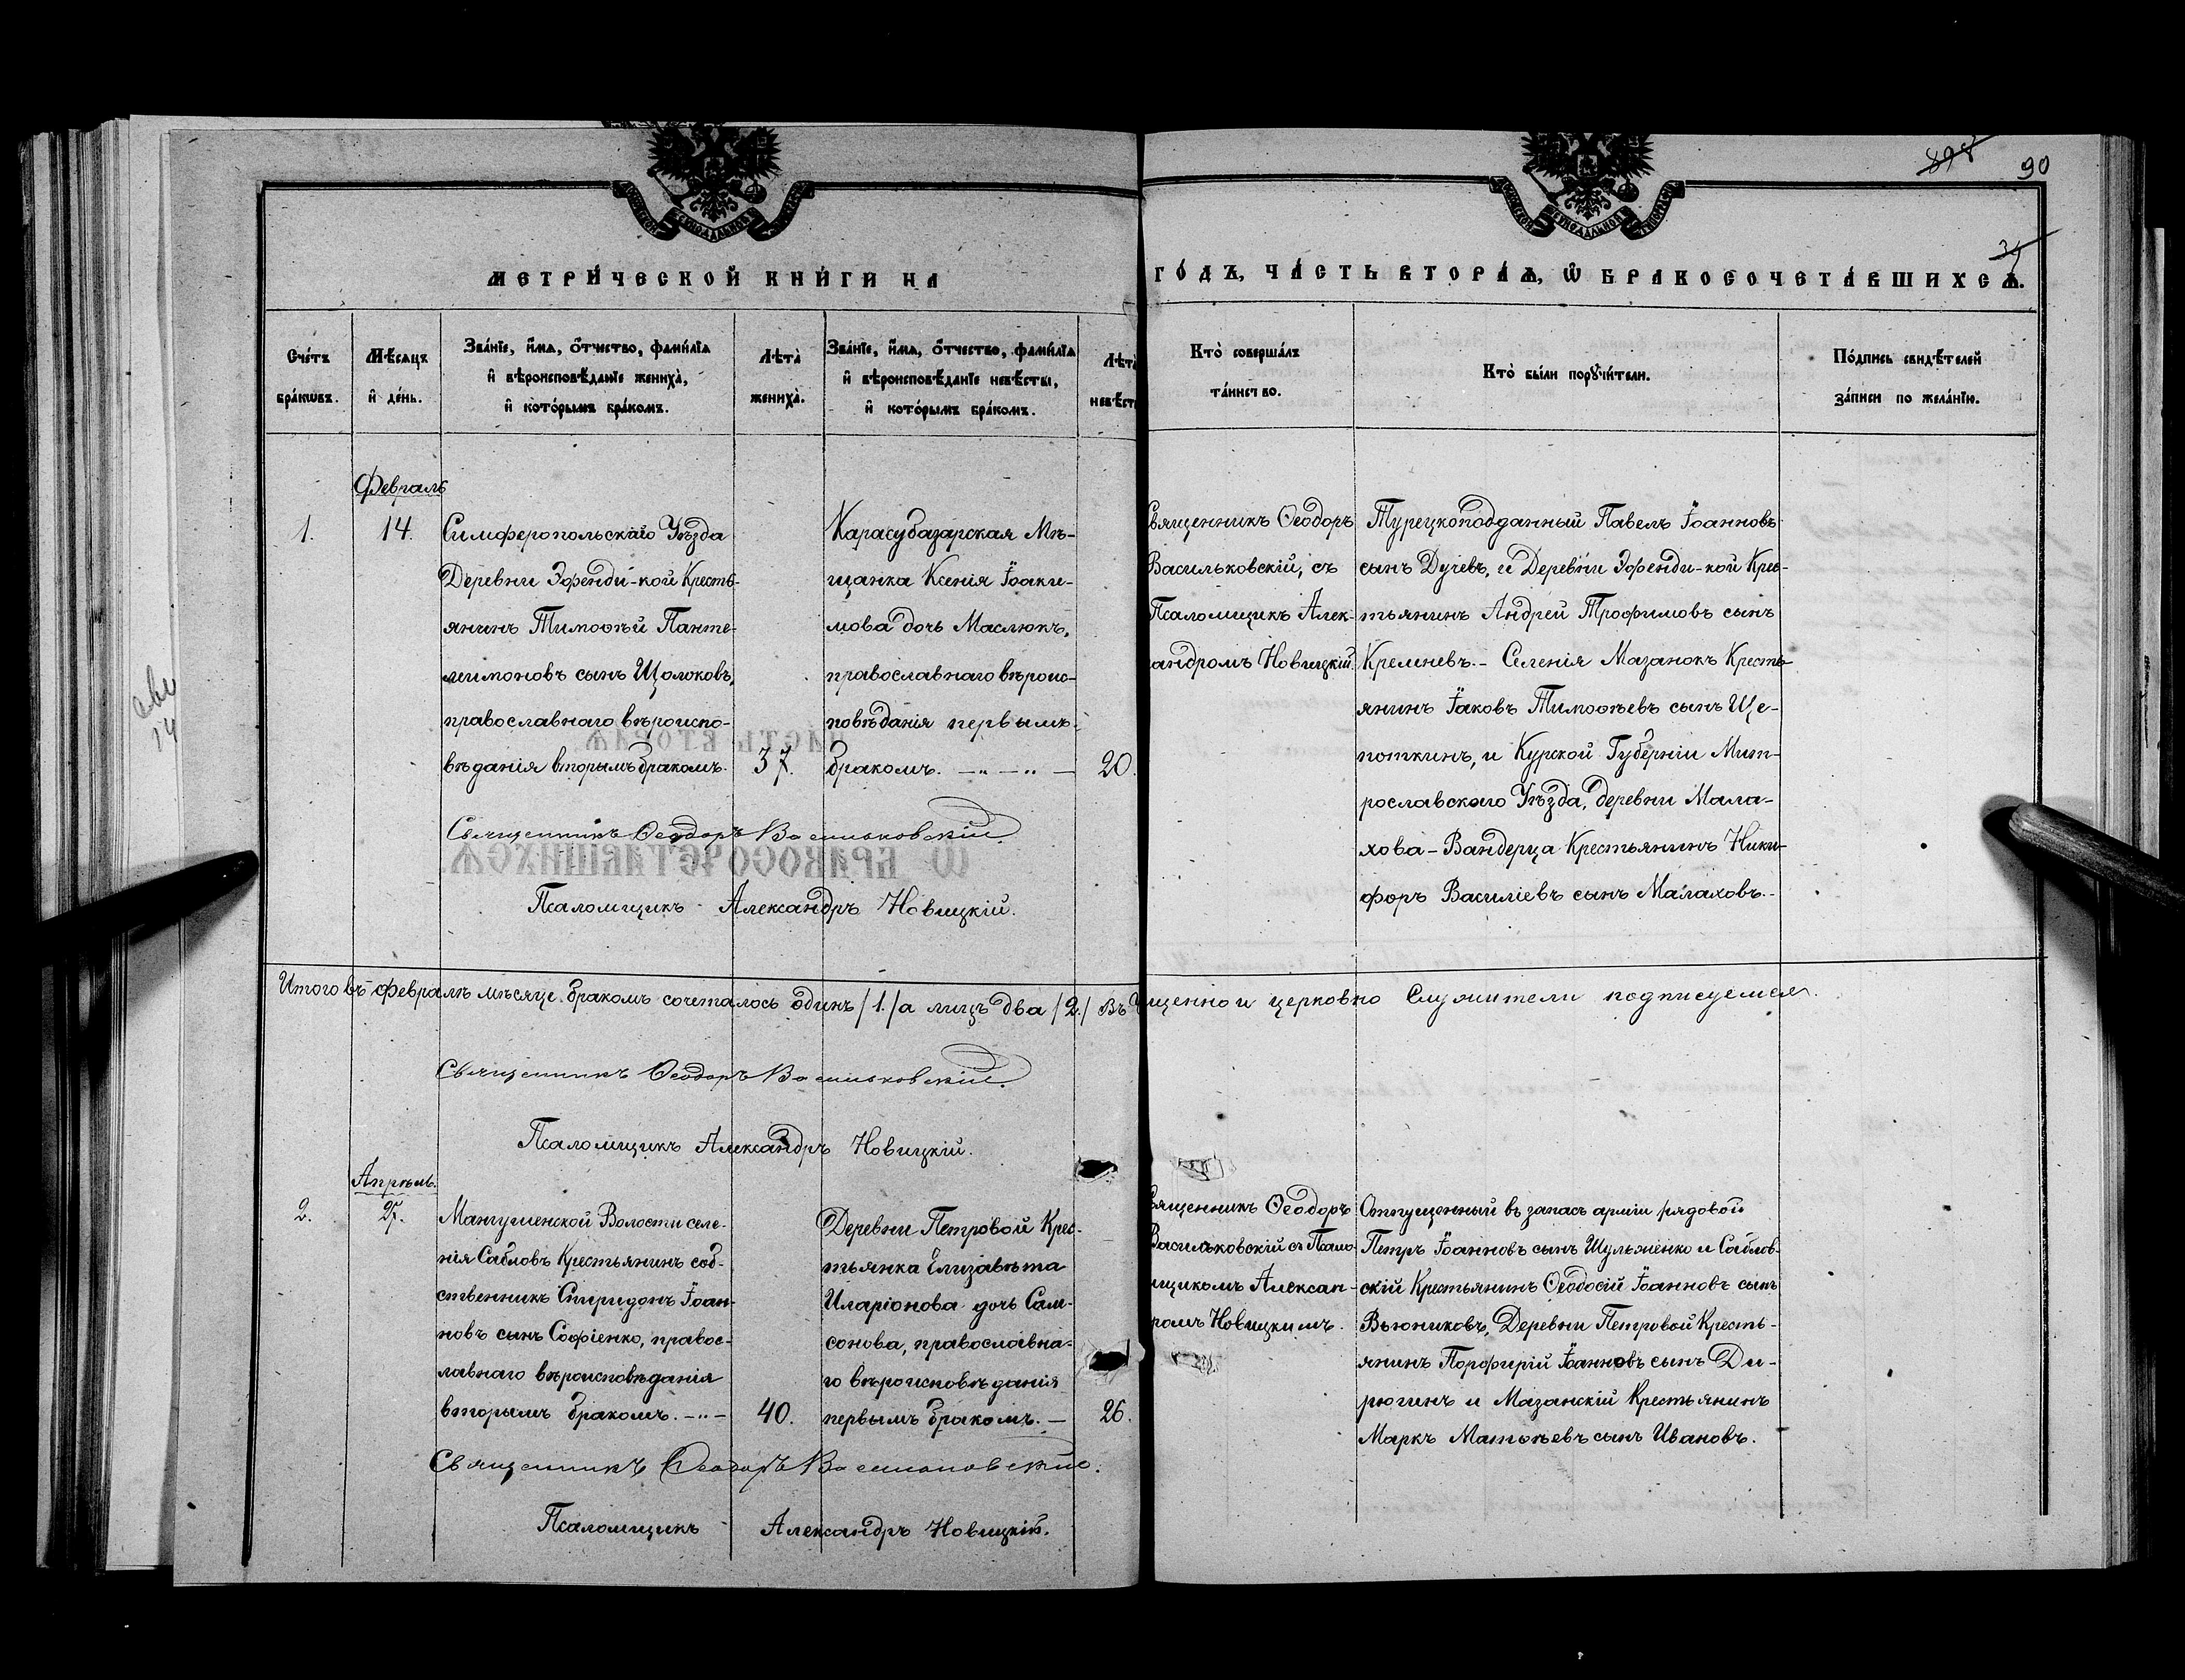 90
МЕТРИ́ЧЕСКОЙ КНИ́ГИ НА
ГО́ДЪ, ЧА́СТЬ ВТОРА́Ѧ, Ѽ БРАКОСОЧЕТА́ВШИХСѦ.
Сче́тъ бра́кѡвъ.
Мѣ́сѧцъ и҆ де́нь.
Зва́нїе, и҆́мѧ, ѻ҆́тчество, фами́лїѧ
и҆ вѣроисповѣ́данїе жениха̀,
и҆ кото́рымъ бра́комъ.
Лѣта̀ жениха̀.
Зва́нїе, и҆́мѧ, ѻ҆́тчество, фами́лїѧ
и҆ вѣроисповѣ́данїе невѣ́сты,
и҆ кото́рымъ бра́комъ.
Лѣта̀ невѣст
Кто̀ соверша́лъ
та́инство.
Кто̀ бы́ли порꙋчи́тели.
По́дпись свидѣ́телей
за́писи по жела́нїю.
Февраль
1.
14.
Симферопольскаго Уѣзда
Деревни Эфенди-кой Кресть-
янинъ Тимоѳѣй Панте-
леимоновъ сынъ Щолоковъ,
православнаго вѣроиспо-
вѣданія вторымъ бракомъ.
37.
Карасубазарская Мѣ-
щанка Ксенія Іоаки-
мова дочь Маслюкъ,
православнаго вѣроис-
повѣданія первымъ
бракомъ. —„—„—
20.
Священникъ Ѳеодоръ
Васильковскій, съ
Псаломщикъ Алек-
андромъ Новицкій.
Турецкоподданный Павелъ Іоанновъ
сынъ Дучевъ, и Деревни Эфенди-кой Крес-
тьянинъ Андрей Трофимовъ сынъ
Кременевъ. - Селенія Мазанокъ Кресть-
янинъ Іаковъ Тимоѳѣевъ сынъ Ще-
поткинъ, и Курской Губерніи Мит-
рославского Уѣзда, деревни Мала-
хова - Вандерца Крестьянинъ Ники-
форъ Василіевъ сынъ Малаховъ.-
Священникъ Ѳеодоръ Васильковскій.
Псаломщикъ Александръ Новицкій.
Итого въ февралѣ мѣсяце бракомъ сочеталось одинъ /1./ а лицъ два /2./ Въ
щенно и церковно Служители подписуемся.
Священникъ Ѳеодоръ Васильковскій.
Псаломщикъ Александръ Новицкій.
Апрѣль.
2.
27.
Мангушенской Волости селе-
нія Сабловъ Крестьянинъ соб-
ственникъ Спиридонъ Іоан-
новъ сынъ Софіенко, правос-
лавнаго вѣроисповѣданія
вторымъ бракомъ. —„—
40.
Деревни Петровой Крес-
тьянка Елизавѣта
Иларіонова дочь Сам-
сонова, православна-
го вѣроисповѣданія
первымъ бракомъ. —
26.
вященникъ Ѳеодоръ
Васильковскій съ Псало-
щикомъ Алексан-
ромъ Новицкимъ.
Отпущенный въ запасъ арміи рядовой
Петръ Іоанновъ сынъ Шульженко и Саблов-
скій Крестьянинъ Ѳеодосій Іоанновъ сынъ
Вьюниковъ, Деревни Петровой Кресть-
янинъ Порфирій Іоанновъ сынъ Ди-
рюгинъ и Мазанскій Крестьянинъ
Маркъ Матѳѣевъ сынъ Ивановъ.
Священникъ Ѳеодоръ Васильковскій.
Псаломщикъ Александръ Новицкій.